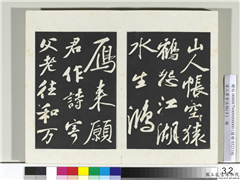 山人帳空猿
鶴怨江湖
水生鴻
鴈來願
君作詩寄
父老往和万
32